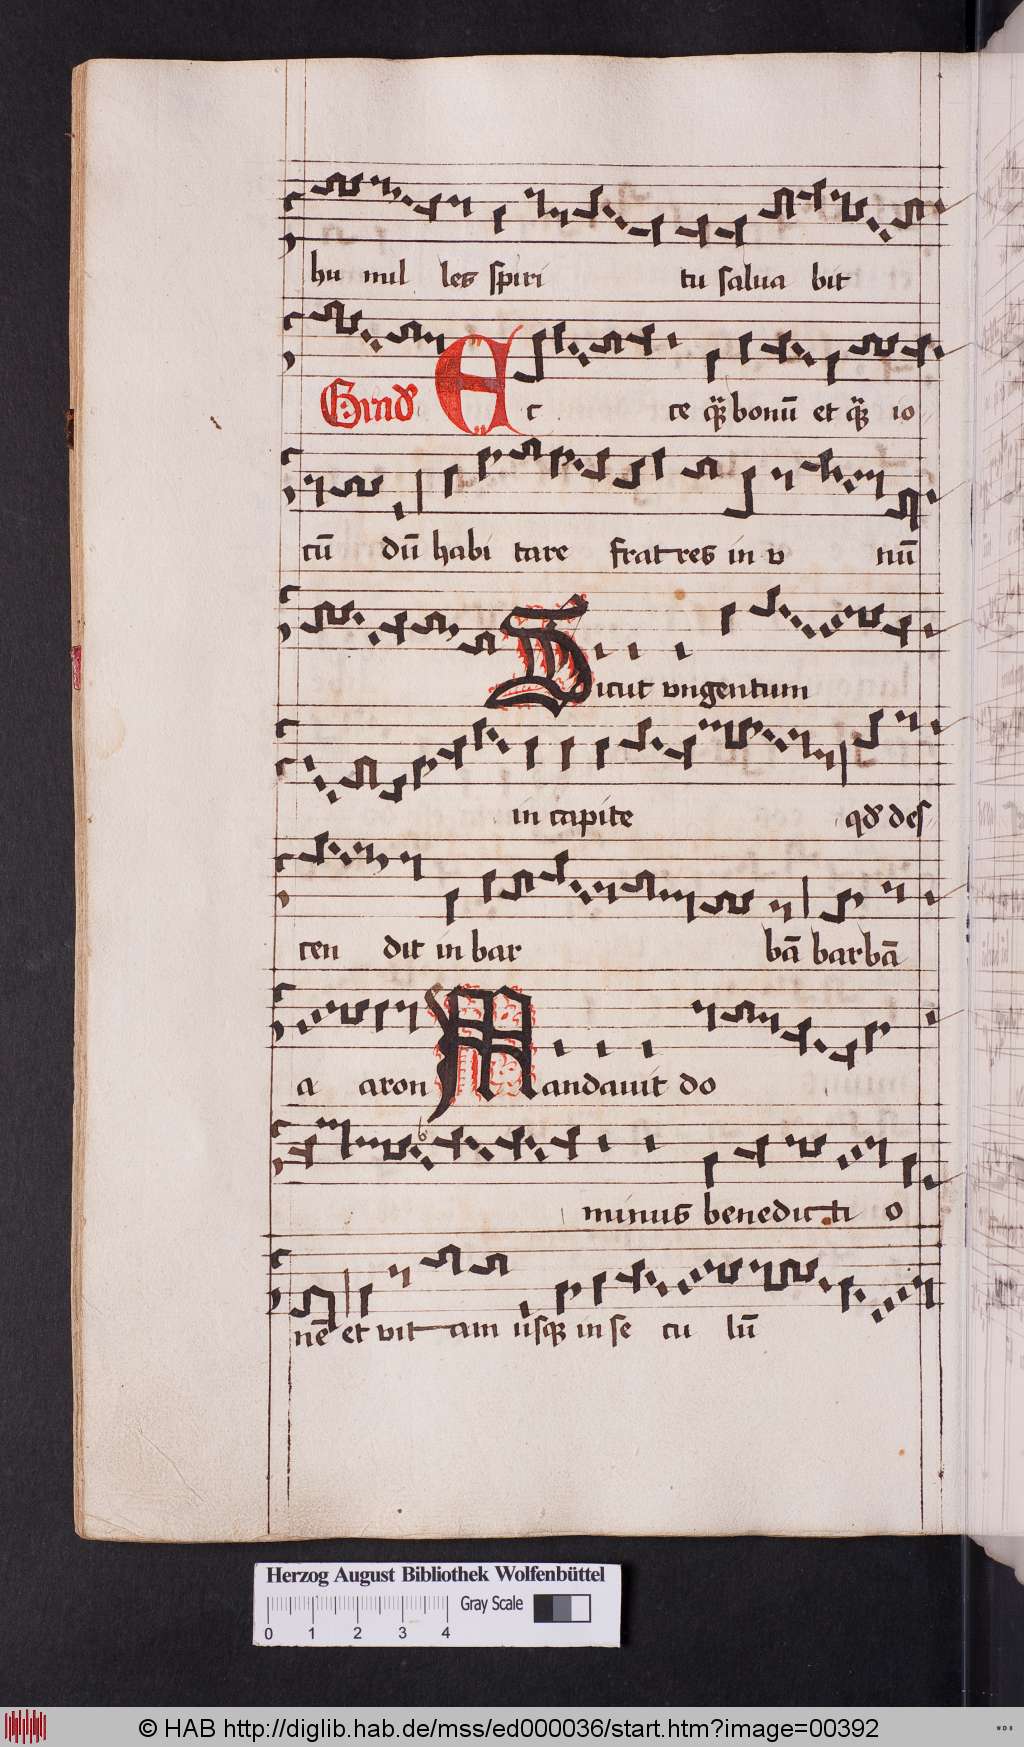 hu mil les spiri tu salua bit
Grad Ec ce q̃ bonũ et q̃ io
cũ dũ habi tare fratres in v nũ
Sicut vngentum
in capite qd des
cen dit in bar bã barbã
a aron Mandauit do
minus benedicti o
nẽ et vitam usq in se cu lũ
Herzog August Bibliothek Wolfenbüttel
Gray Scale
0 1 2 3 4
© HAB http://diglib.hab.de/mss/ed000036/start.htm?image=00392